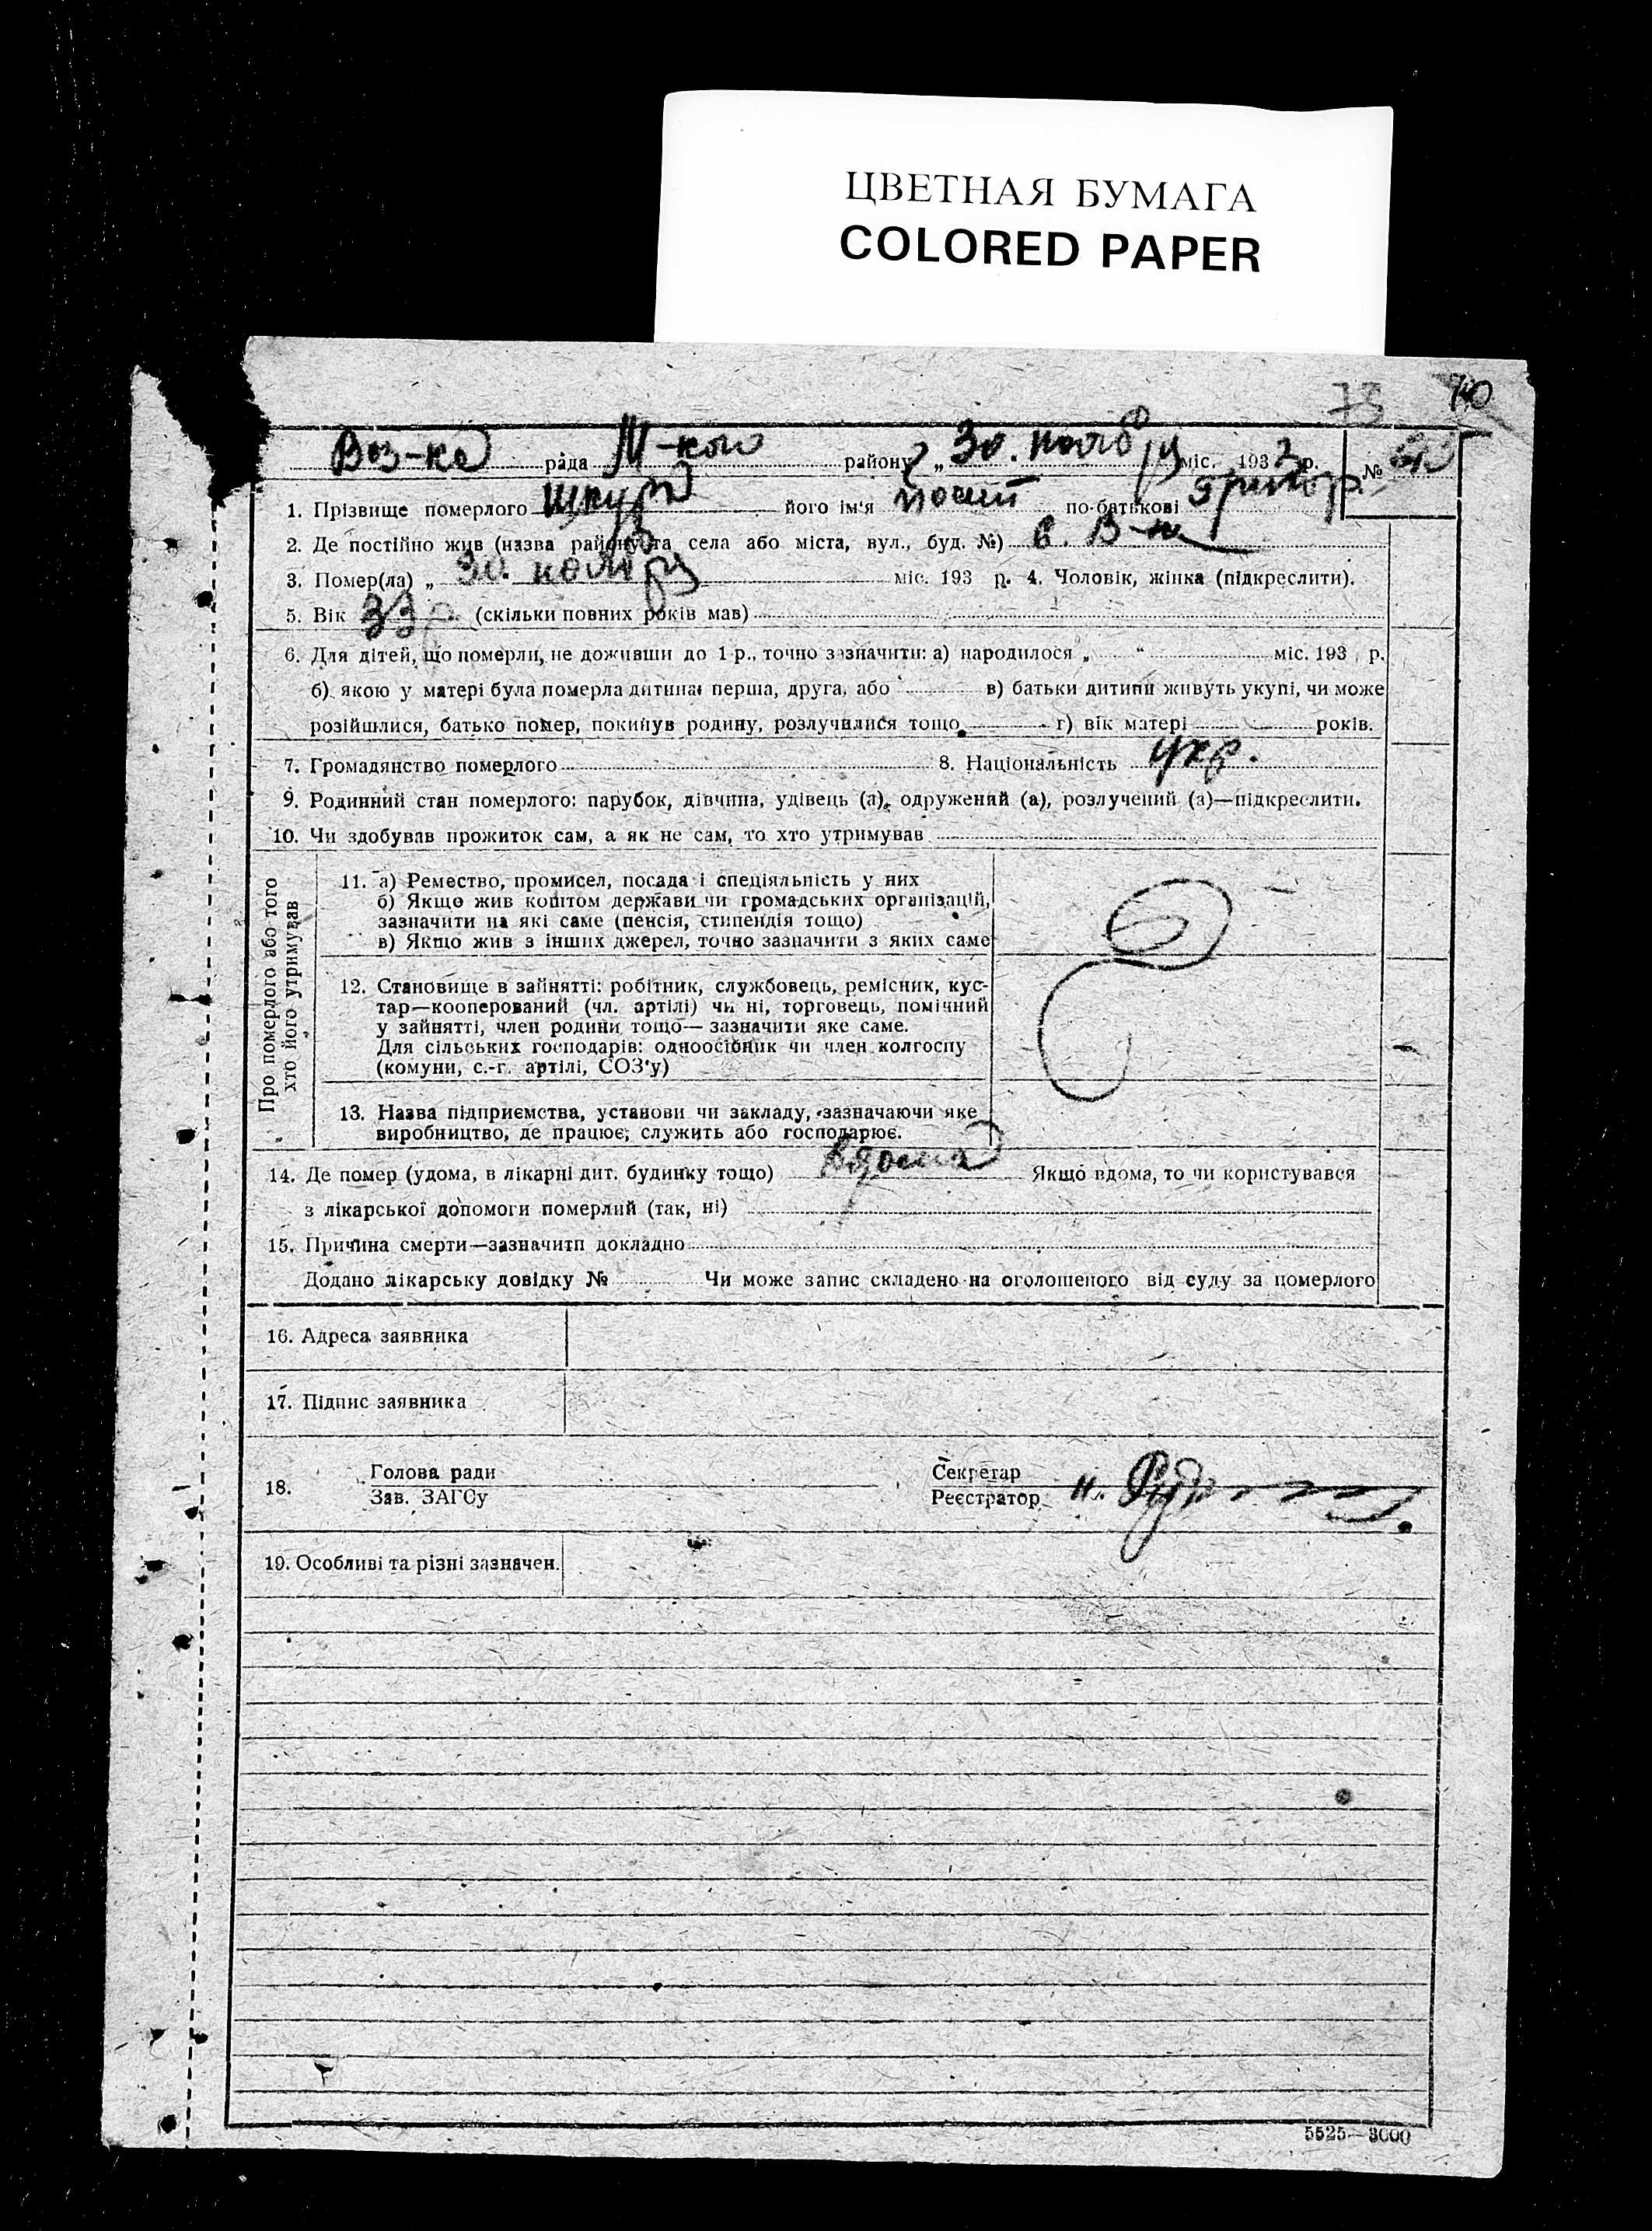 ЦВЕТНАЯ БУМАГА
COLORED PAPER
73
Воз-ка рада Ш-кого району „ 30. ноября міс. 1932 р. №
1. Прізвище померлого його ім'я по-батькові Григор.
2. Де постійно жив (назва району та села або міста, вул., буд. №) с. В-ка
3. Помер(ла) „ 30. ноября міс. 193 р. 4. Чоловік, жінка (підкреслити).
5. Вік 33 р. (скільки повних років мав)
6. Для дітей, що померли, не доживши до 1 р., точно зазначити: а) народилося „ “ міс. 193 р.
б) якою у матері була померла дитина: перша, друга, або в) батьки дитини живуть укупі, чи може
розійшлися, батько помер, покинув родину, розлучилися тощо г) вік матері років.
7. Громадянство померлого 8. Національність укр.
9. Родинний стан померлого: парубок, дівчина, удівець (а), одружений (а), розлучений (а)—підкреслити.
10. Чи здобував прожиток сам, а як не сам, то хто утримував
Про померлого або того
хто його утримував
11. а) Ремество, промисел, посада і спеціяльність у них
б) Якщо жив коштом держави чи громадських організацій,
зазначити на які саме (пенсія, стипендія тощо)
в) Якщо жив з інших джерел, точно зазначити з яких саме
12. Становище в зайнятті: робітник, службовець, ремісник, кус-
тар—кооперований (чл. артілі) чи ні, торговець, помічний
у зайнятті, член родини тощо— зазначити яке саме.
Для сільських господарів: одноосібник чи член колгоспу
(комуни, с.-г. артілі, СОЗ'у)
13. Назва підприємства, установи чи закладу, зазначаючи яке
виробництво, де працює, служить або господарює.
14. Де помер (удома, в лікарні дит. будинку тощо) вдома Якщо вдома, то чи користувався
з лікарської допомоги померлий (так, ні)
15. Причина смерти—зазначити докладно
Додано лікарську довідку № Чи може запис складено на оголошеного від суду за померлого
16. Адреса заявника
17. Підпис заявника
18. Голова ради Секретар
Зав. ЗАГСу Реєстратор
19. Особливі та різні зазначен.
5525—3000